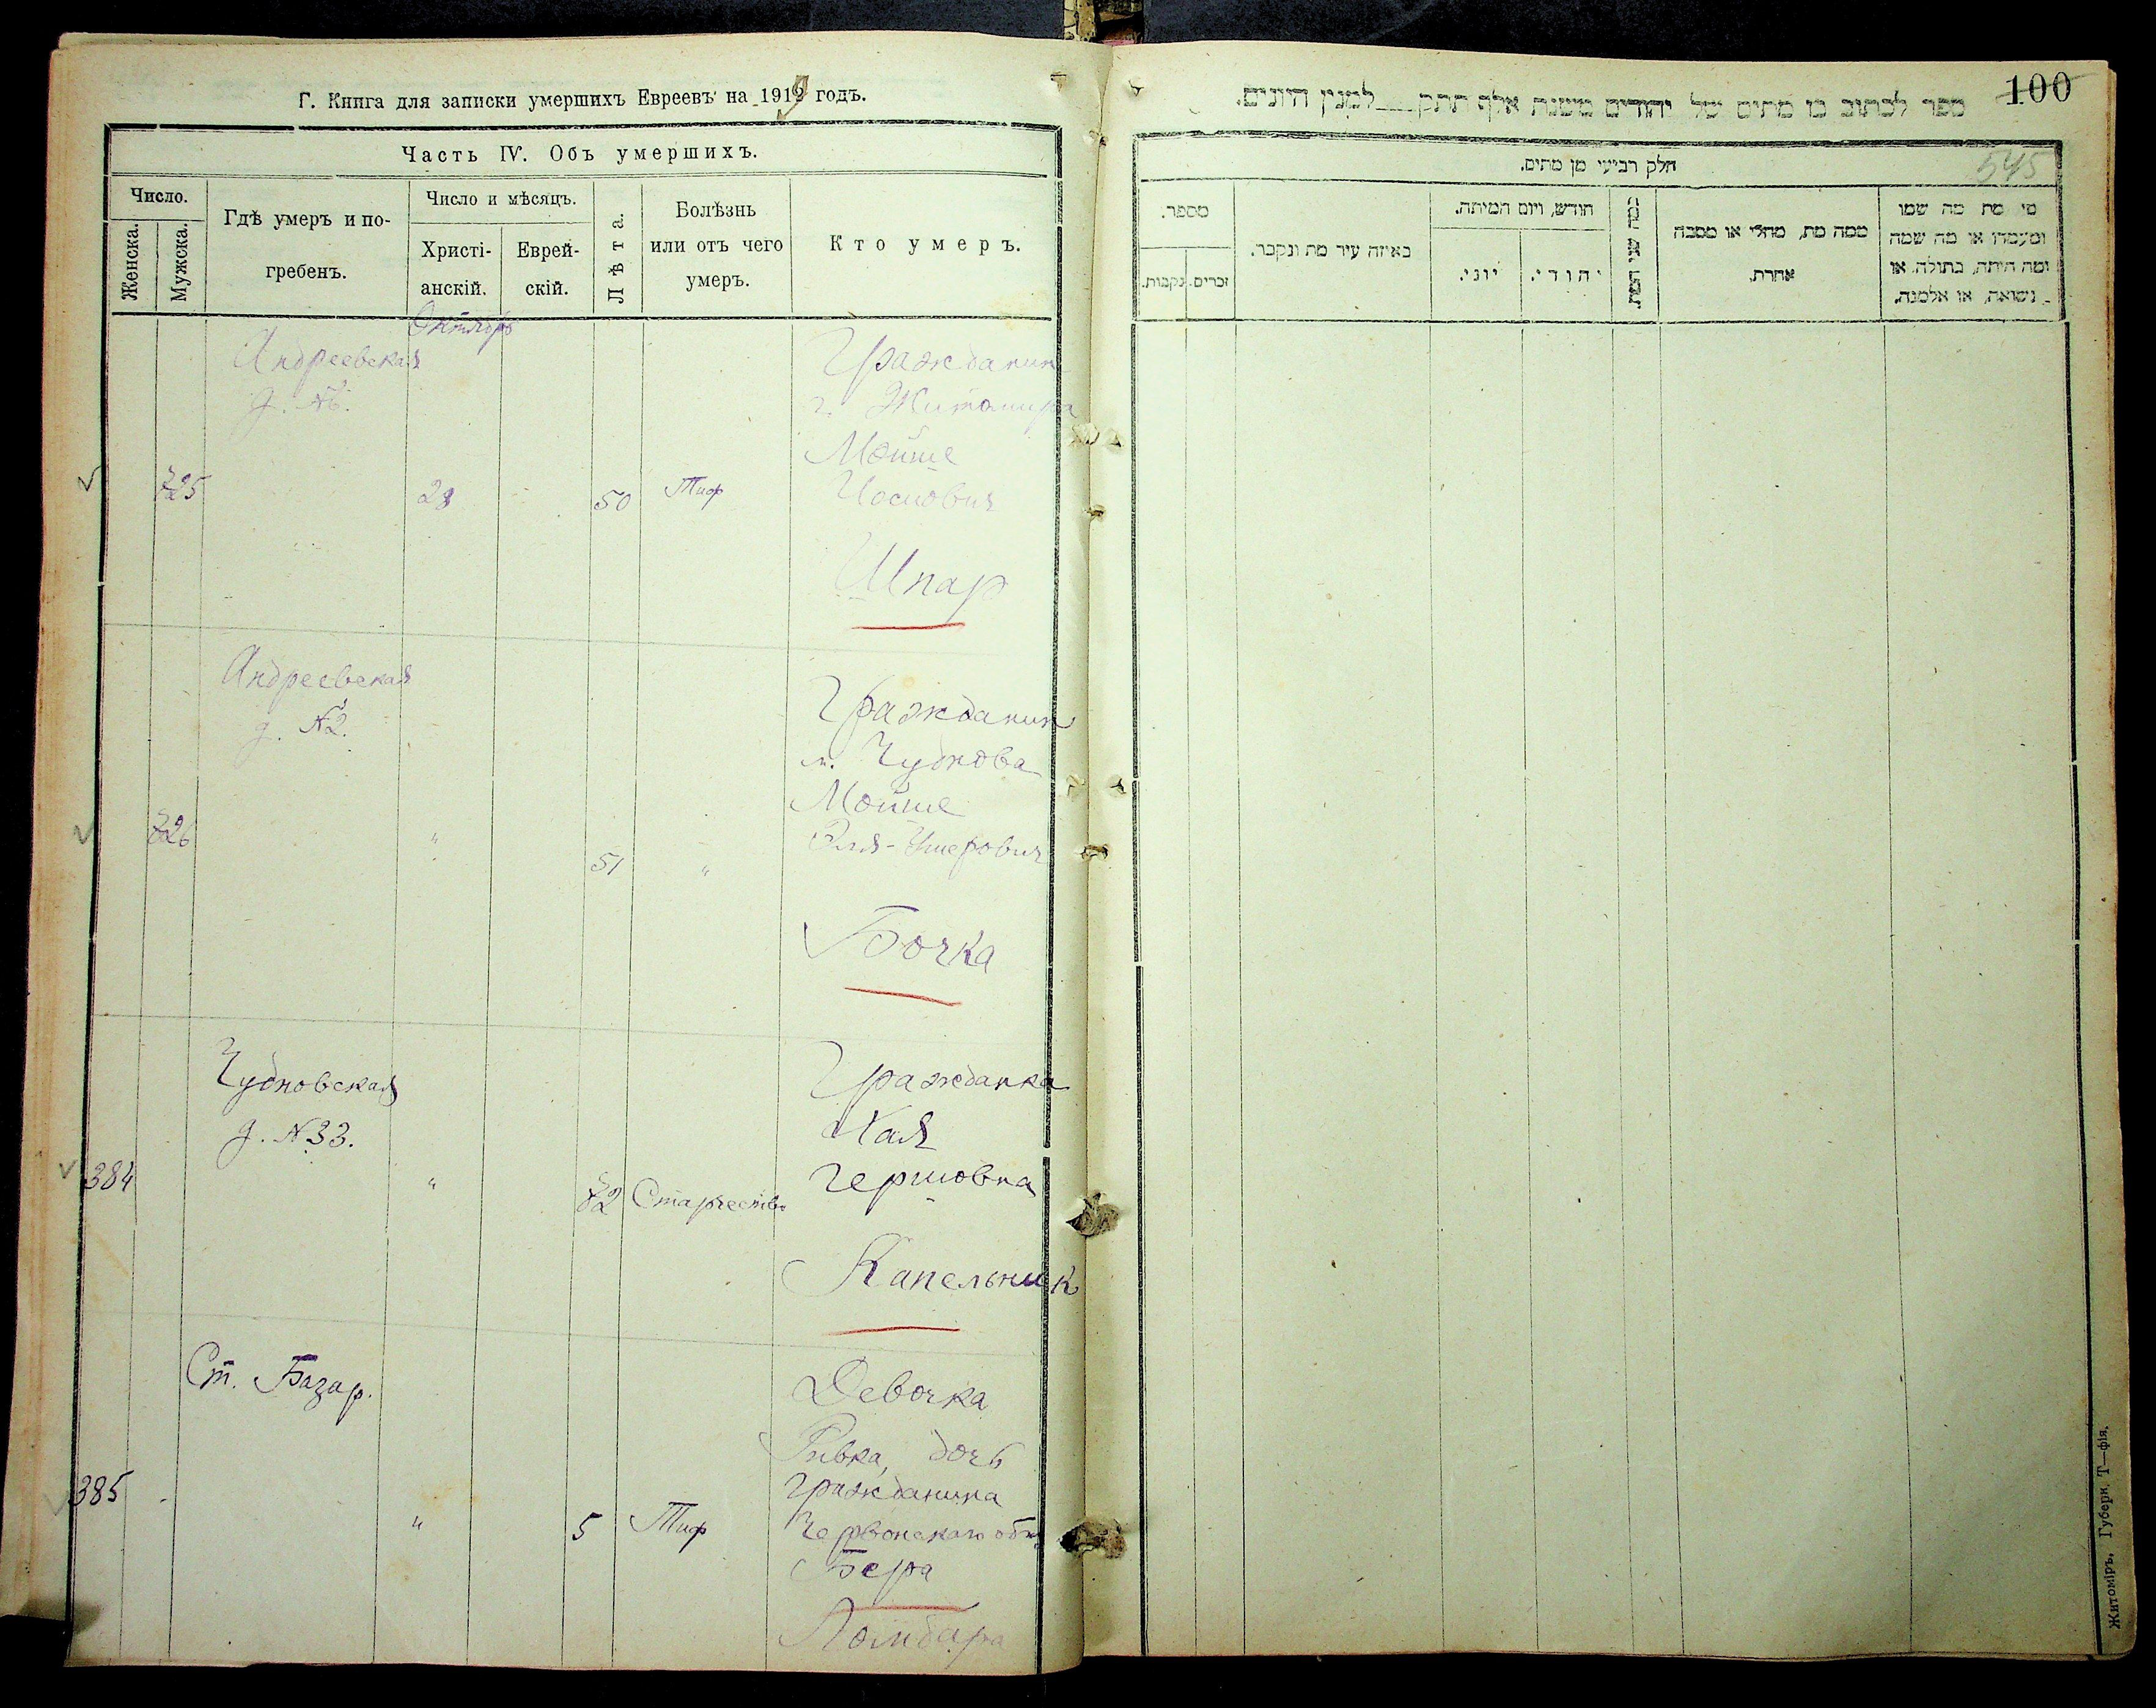 Г. Книга для записки умершихъ Евреевъ на 1919 годъ.
Часть IV. Объ умершихъ.
Число.
Женска.
Мужска.
Гдѣ умеръ и по-
гребенъ.
Число и мѣсяцъ.
Христі-
анскій.
Еврей-
скій.
Лѣта.
Болѣзнь
или отъ чего
умеръ.
Кто умеръ.
Октябрь
Андреевская
д. №6.
725
28
50
Тиф
Гражданин
г. Житомира
Мойше
Иосиович
Шпар
Андреевская
д. №2.
726
"
51
"
Гражданин
м. Чуднова
Мойше
Эля-Ушерович
Бочка
Чудновская
д. №33.
384
"
72
Старчество
Гражданка
Хая
Гершовна
Капельник
Ст. Базар.
385
"
5
Тиф
Девочка
Ривка, дочь
гражданина
Червонскаго общ.
Бера
Ломбара
100
ספר לכתוב בו מתים של יהודים משנת אלף תתק למנין היונים.
חלק רביעי מן מתים.
545
מספר.
זכרים.
נקבות.
באיזה עיר מת ונקבר.
חודש, ויום המיתה.
יוני.
יהודי.
כמה שני המת
ממה מת, מחלי או מסבה
אחרת.
מי מת מה שמו
ומעמדו או מה שמה
ומה היתה, בתולה, או
נשואה, או אלמנה.
Житоміръ, Губерн. Т—фія.